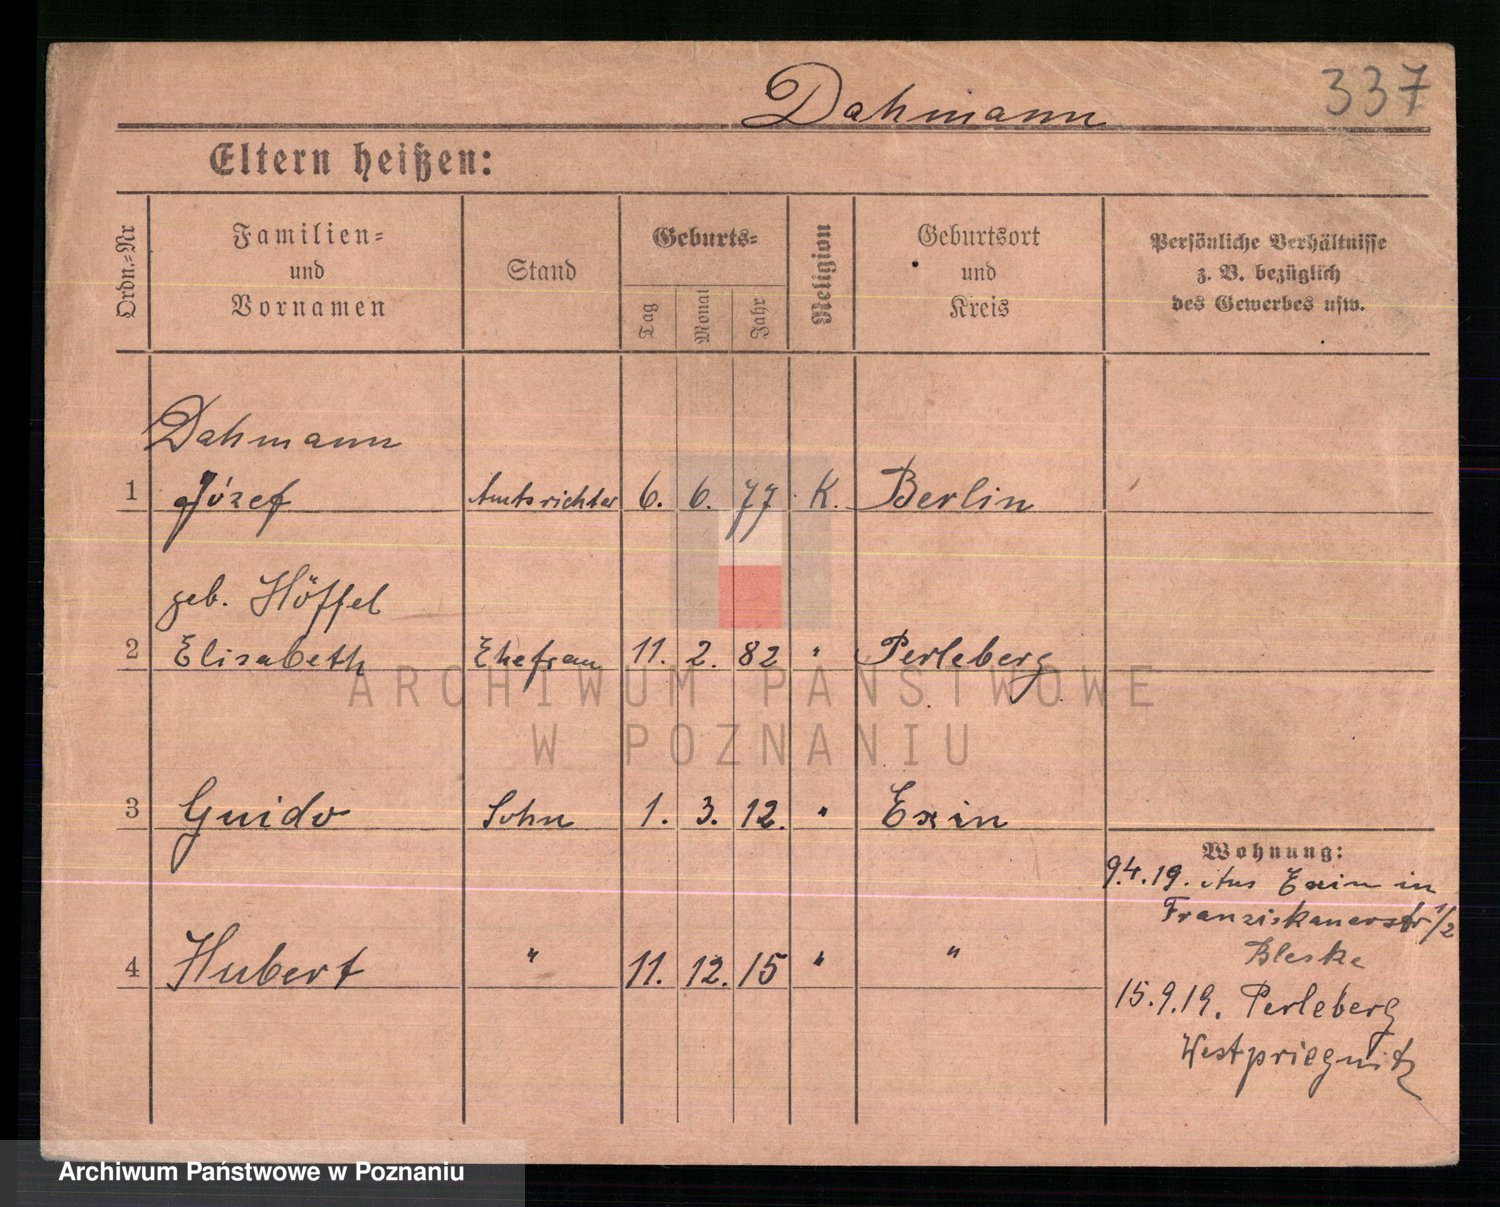 337
Dahmann
Eltern heißen:
Ordn.-Nr
Familien-
und
Vornamen
Stand
Geburts-
Tag
Monat
Jahr
Religion
Geburtsort
und
Kreis
Persönliche Verhältnisse
z. B. bezüglich
des Gewerbes usw.
Dahmann
1 Józef Amtsrichter 6. 6. 77 K. Berlin
geb. Höffel
2 Elisabeth Ehefrau 11. 2. 82 " Perleberg
3 Guido Sohn 1. 3. 12. " Exin
Wohnung:
9.4.19. Aus Exin in
Franziskanerstr 1/2
Bleske
4 Hubert " 11. 12. 15 " "
15.9.19. Perleberg
Westpriegnitz
ARCHIWUM PAŃSTWOWE
W POZNANIU
Archiwum Państwowe w Poznaniu